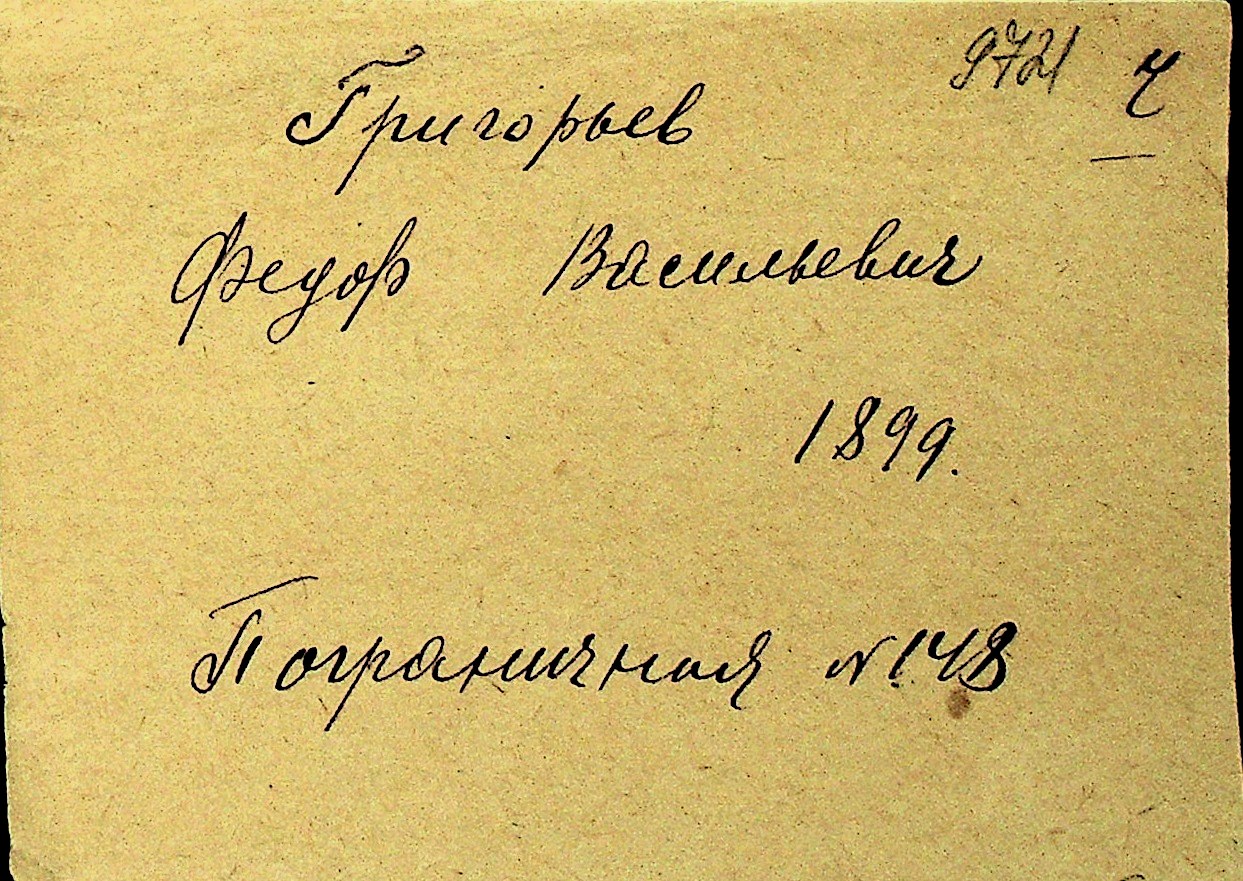 9721 7
Григорьев
Федор Васильевич
1899.
Пограничная №148